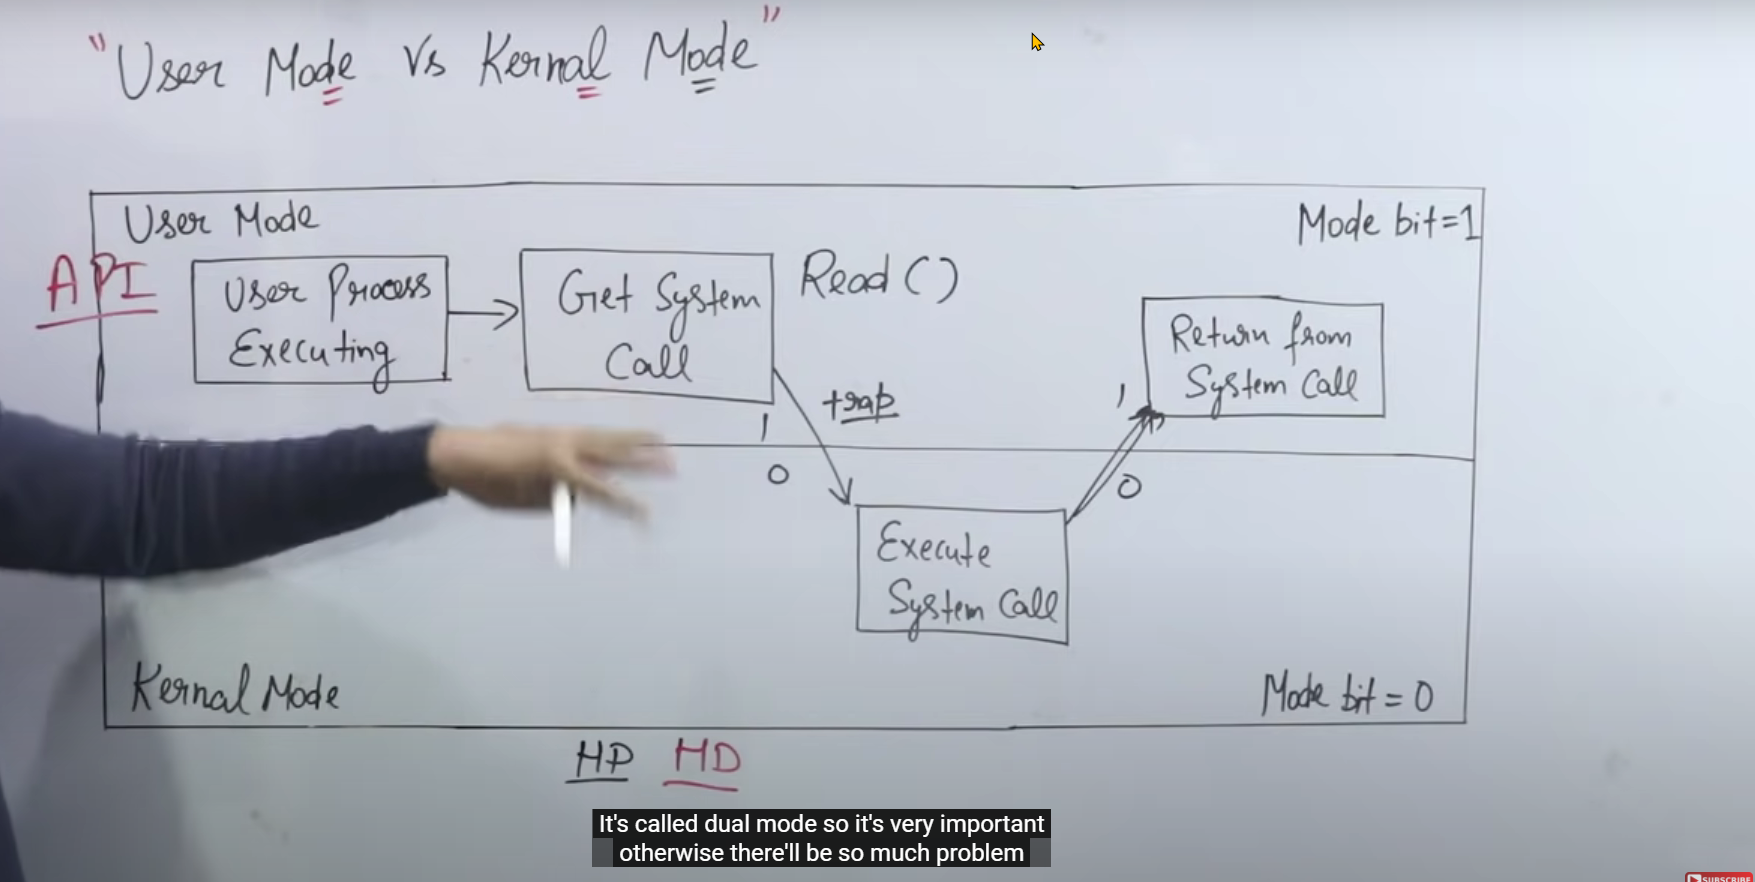 "User Mode Vs Kernal Mode"
User Mode
Mode bit=1
API
User Process
Executing
Get System
Call
Read ( )
Return from
System Call
trap
1
0
1
0
Execute
System Call
Kernal Mode
Mode bit = 0
HP HD
It's called dual mode so it's very important
otherwise there'll be so much problem
SUBSCRIBE